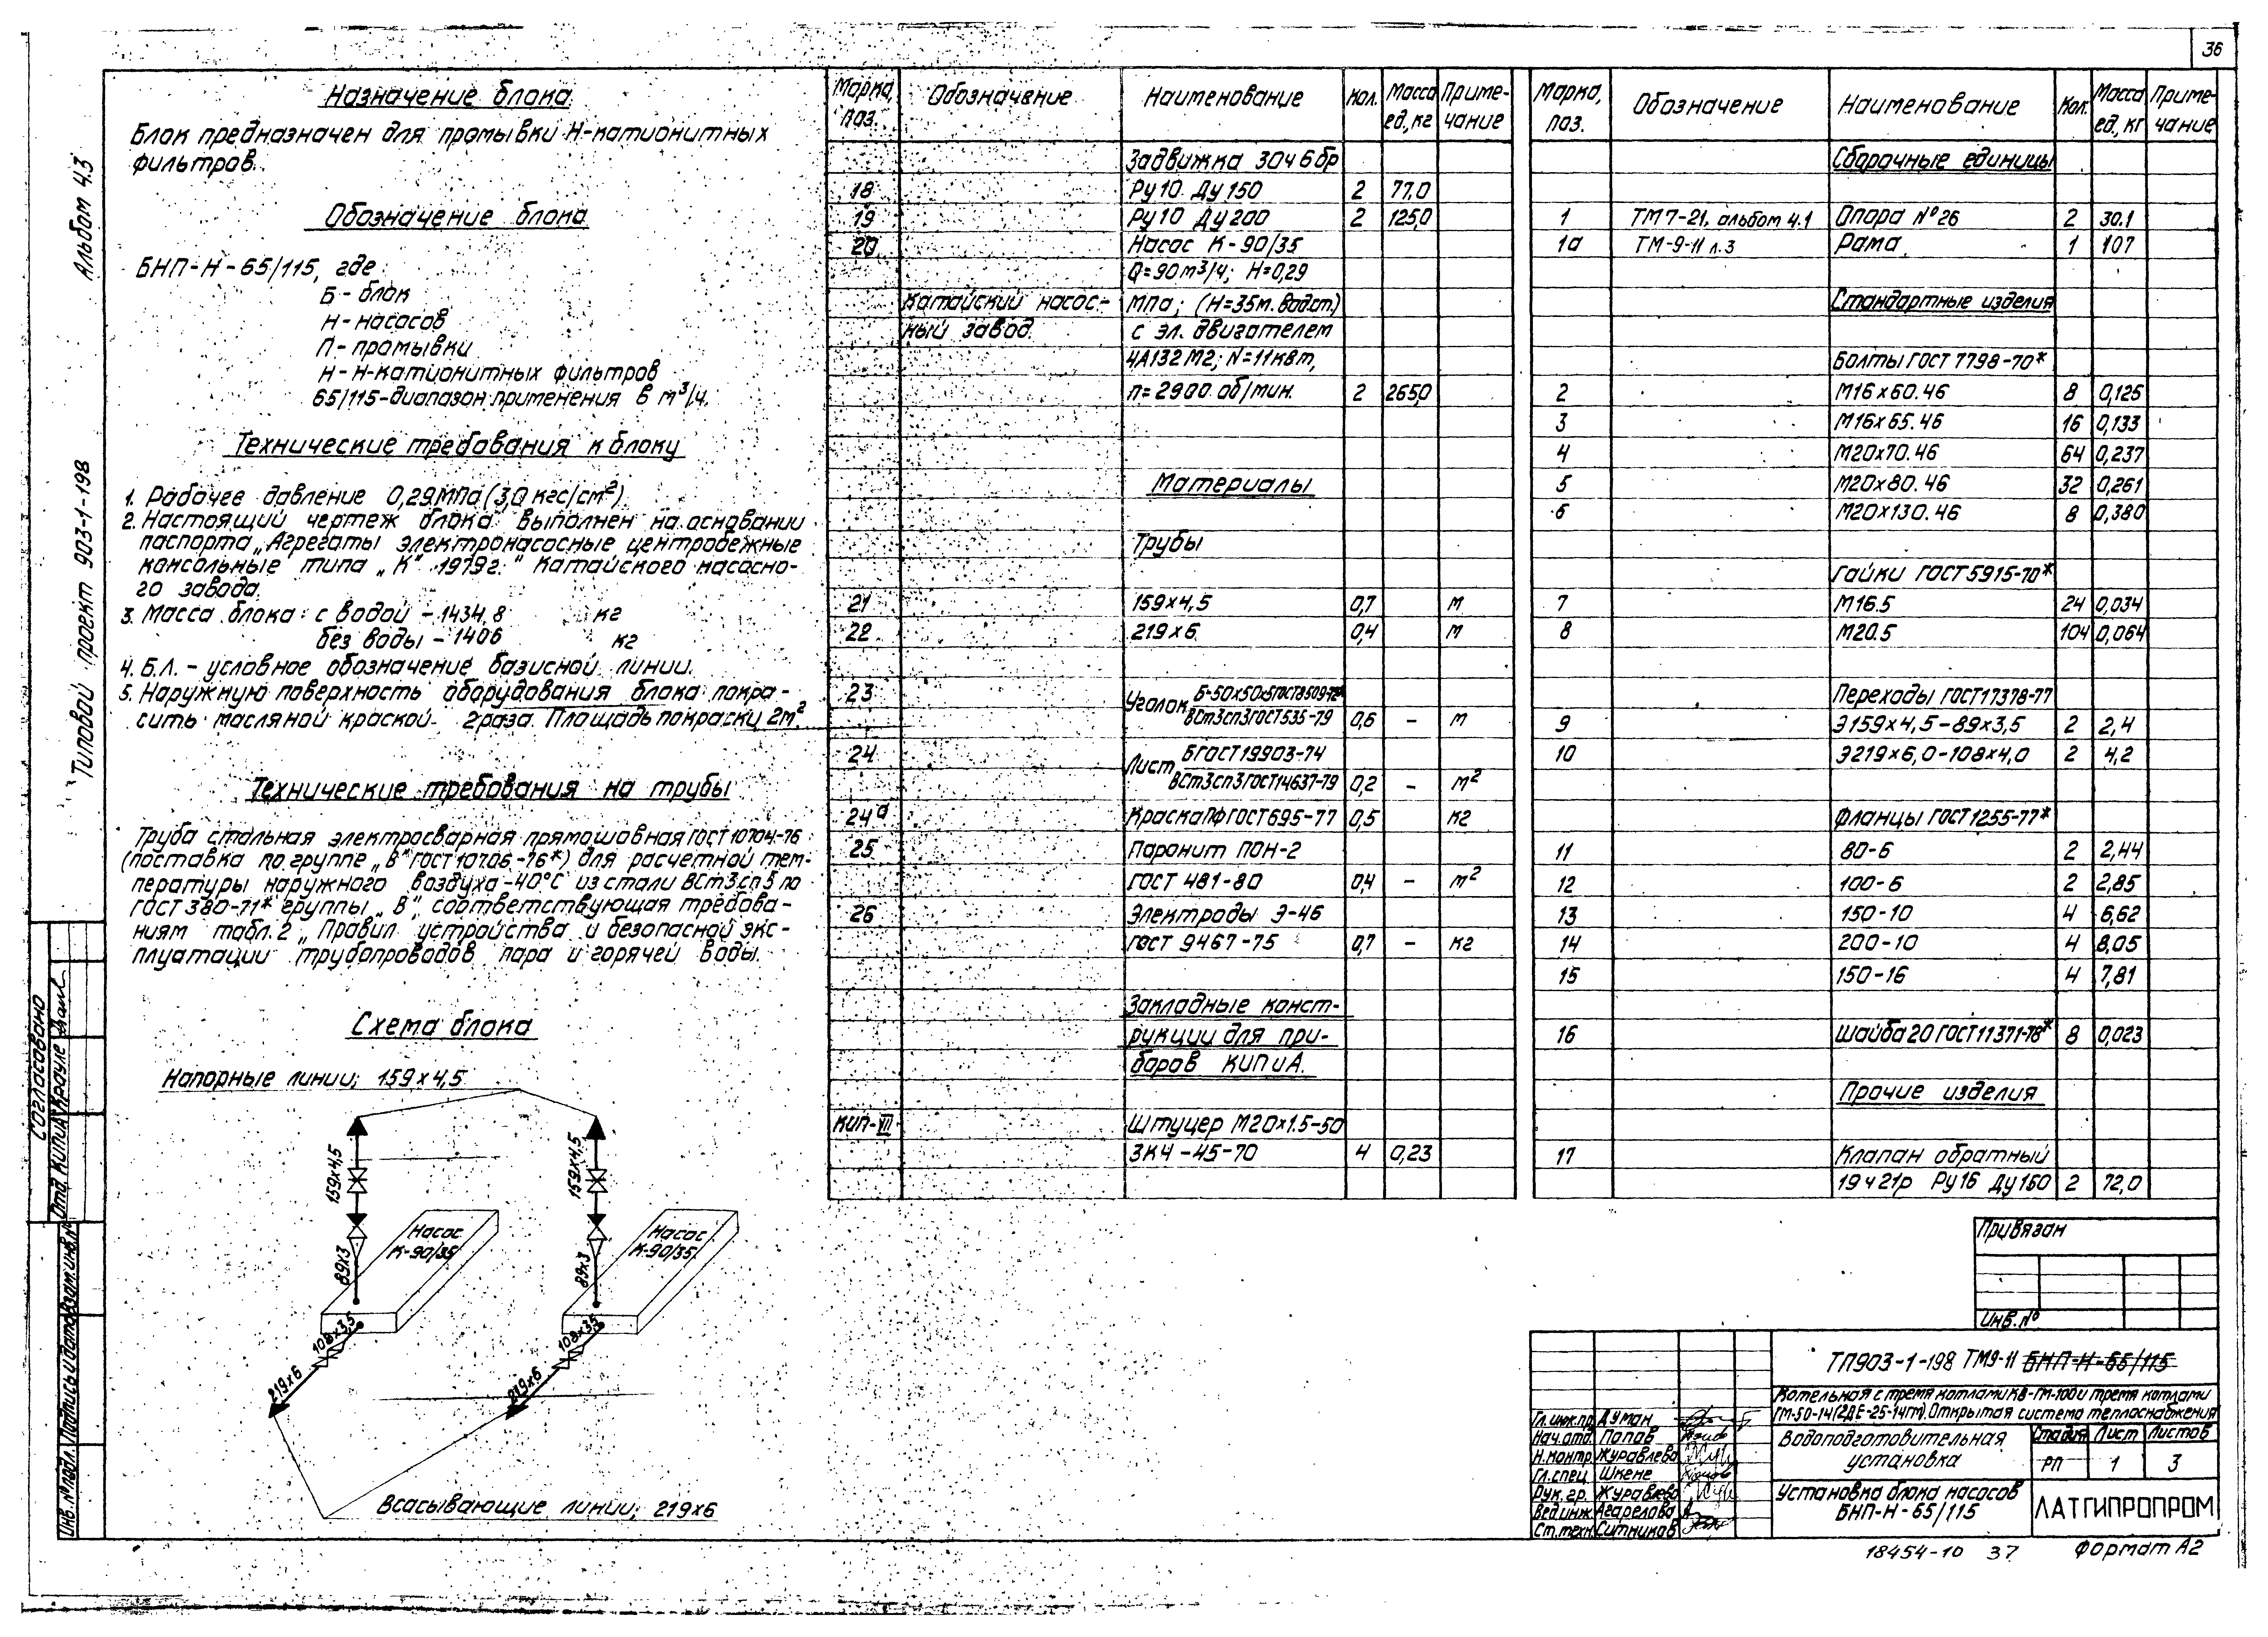 36
Альбом 4.3
Типовой проект 903-1-198
Назначение блока
Блок предназначен для промывки Н-катионитных
фильтров.
Обозначение блока
БНП-Н-65/115, где
Б - блок
Н - насосов
П - промывки
Н - Н-катионитных фильтров
65/115-диапазон применения в м³/ч.
Технические требования к блоку
1. Рабочее давление 0,29МПа (3,0 кгс/см²)
2. Настоящий чертеж блока выполнен на основании
паспорта „Агрегаты электронасосные центробежные
консольные типа „К" 1979г." Катайского насосно-
го завода.
3. Масса блока: с водой - 1434,8 кг
без воды - 1406 кг
4. Б.Л. - условное обозначение базисной линии.
5. Наружную поверхность оборудования блока покра-
сить масляной краской 2 раза. Площадь покраски 2м²
Технические требования на трубы
Труба стальная электросварная прямошовная ГОСТ 10704-76
(поставка по группе „В" ГОСТ 10706-76*) для расчетной тем-
пературы наружного воздуха -40°С из стали ВСт3сп5 по
ГОСТ 380-71* группы „В", соответствующая требова-
ниям табл.2 „Правил устройства и безопасной экс-
плуатации трубопроводов пара и горячей воды.
Схема блока
Напорные линии; 159×4,5
159×4,5
159×4,5
Насос К-90/35
Насос К-90/35
89×3
89×3
108×3,5
108×3,5
219×6
219×6
Всасывающие линии; 219×6
Марка, поз. Обозначение Наименование Кол. Масса ед., кг Примечание
Задвижка 30ч6бр
18 Ру10 Ду150 2 77,0
19 Ру10 Ду200 2 125,0
20 Насос К-90/35
Q=90м³/ч; Н=0,29
Катайский насос- МПа; (Н=35м.вод.ст.)
ный завод с эл. двигателем
4А132М2; N=11квт,
n=2900 об/мин. 2 265,0
Материалы
Трубы
21 159×4,5 0,7 м
22 219×6 0,4 м
23 Уголок Б-50×50×5 ГОСТ 8509-72*
ВСт3сп3 ГОСТ 535-79 0,6 - м
24 Лист Б ГОСТ 19903-74
ВСт3сп3 ГОСТ 14637-79 0,2 - м²
24а Краска ПФ ГОСТ 695-77 0,5 кг
25 Паронит ПОН-2
ГОСТ 481-80 0,4 - м²
26 Электроды Э-46
ГОСТ 9467-75 0,7 - кг
Закладные конст-
рукции для при-
боров КИПиА.
КИП-VII Штуцер М20×1.5-50
ЗК4-45-70 4 0,23
Марка, поз. Обозначение Наименование Кол. Масса ед., кг Примечание
Сборочные единицы
1 ТМ7-21, альбом 4.1 Опора №26 2 30.1
1а ТМ-9-11 л.3 Рама 1 107
Стандартные изделия
Болты ГОСТ 7798-70*
2 М16×60.46 8 0,125
3 М16×65.46 16 0,133
4 М20×70.46 64 0,237
5 М20×80.46 32 0,261
6 М20×130.46 8 0,380
Гайки ГОСТ 5915-70*
7 М16.5 24 0,034
8 М20.5 104 0,064
Переходы ГОСТ 17378-77
9 Э159×4,5-89×3,5 2 2,4
10 Э219×6,0-108×4,0 2 4,2
Фланцы ГОСТ 1255-77*
11 80-6 2 2,44
12 100-6 2 2,85
13 150-10 4 6,62
14 200-10 4 8,05
15 150-16 4 7,81
16 Шайба 20 ГОСТ 11371-78* 8 0,023
Прочие изделия
17 Клапан обратный
19ч21р Ру16 Ду150 2 72,0
Привязан
Инв. №
ТП903-1-198 ТМ9-11 БНП-Н-65/115
Котельная с тремя котлами КВ-ГМ-100 и тремя котлами
ГМ-50-14 (2ДЕ-25-14ГМ). Открытая система теплоснабжения
Гл.инж.пр. Думан
Нач.отд. Попов
Н.контр. Журавлева
Гл.спец. Шкене
Рук.гр. Журавлева
Вед.инж. Агарелова
Ст.техн. Ситников
Водоподготовительная
установка
Стадия Лист Листов
РП 1 3
Установка блока насосов
БНП-Н-65/115
ЛАТГИПРОПРОМ
18454-10 37 Формат А2
Согласовано
Отд. КИПиА Крауле
Инв.№подл. Подпись и дата Взам.инв.№